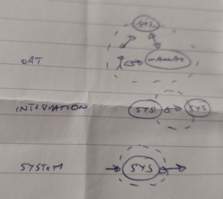 SYS
UAT
INTEGRATION
SYS SYS
SYSTEM
SYS